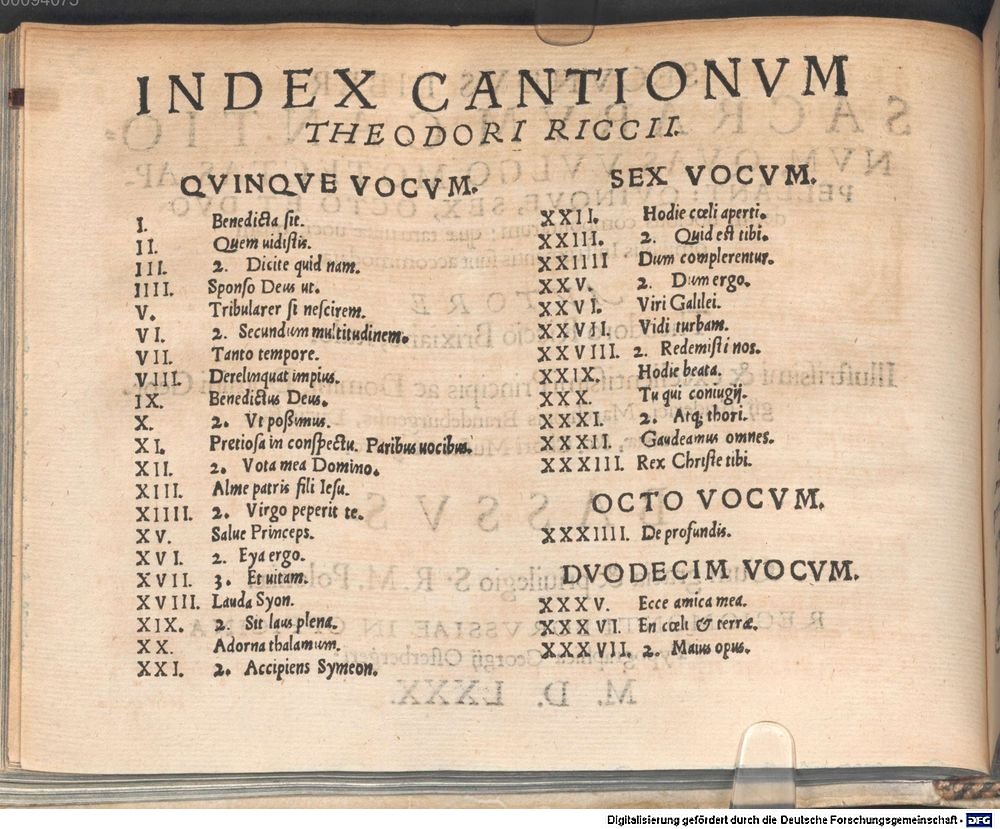 INDEX CANTIONVM
THEODORI RICCII.
QVINQVE VOCVM.
I. Benedicta sit.
II. Quem uidistis.
III. 2. Dicite quid nam.
IIII. Sponso Deus ut.
V. Tribularer si nescirem.
VI. 2. Secundum multitudinem.
VII. Tanto tempore.
VIII. Derelinquat impius.
IX. Benedictus Deus.
X. 2. Vt possimus.
XI. Pretiosa in conspectu. Paribus uocibus.
XII. 2. Vota mea Domino.
XIII. Alme patris fili Iesu.
XIIII. 2. Virgo peperit te.
XV. Salue Princeps.
XVI. 2. Eya ergo.
XVII. 3. Et uitam.
XVIII. Lauda Syon.
XIX. 2. Sit laus plena.
XX. Adorna thalamum.
XXI. 2. Accipiens Symeon.
SEX VOCVM.
XXII. Hodie cœli aperti.
XXIII. 2. Quid est tibi.
XXIIII Dum complerentur.
XXV. 2. Dum ergo.
XXVI. Viri Galilei.
XXVII. Vidi turbam.
XXVIII. 2. Redemisti nos.
XXIX. Hodie beata.
XXX. Tu qui coniugij.
XXXI. 2. Atq; thori.
XXXII. Gaudeamus omnes.
XXXIII. Rex Christe tibi.
OCTO VOCVM.
XXXIIII. De profundis.
DVODECIM VOCVM.
XXXV. Ecce amica mea.
XXXVI. En cœli & terræ.
XXXVII. 2. Maius opus.
Digitalisierung gefördert durch die Deutsche Forschungsgemeinschaft - DFG